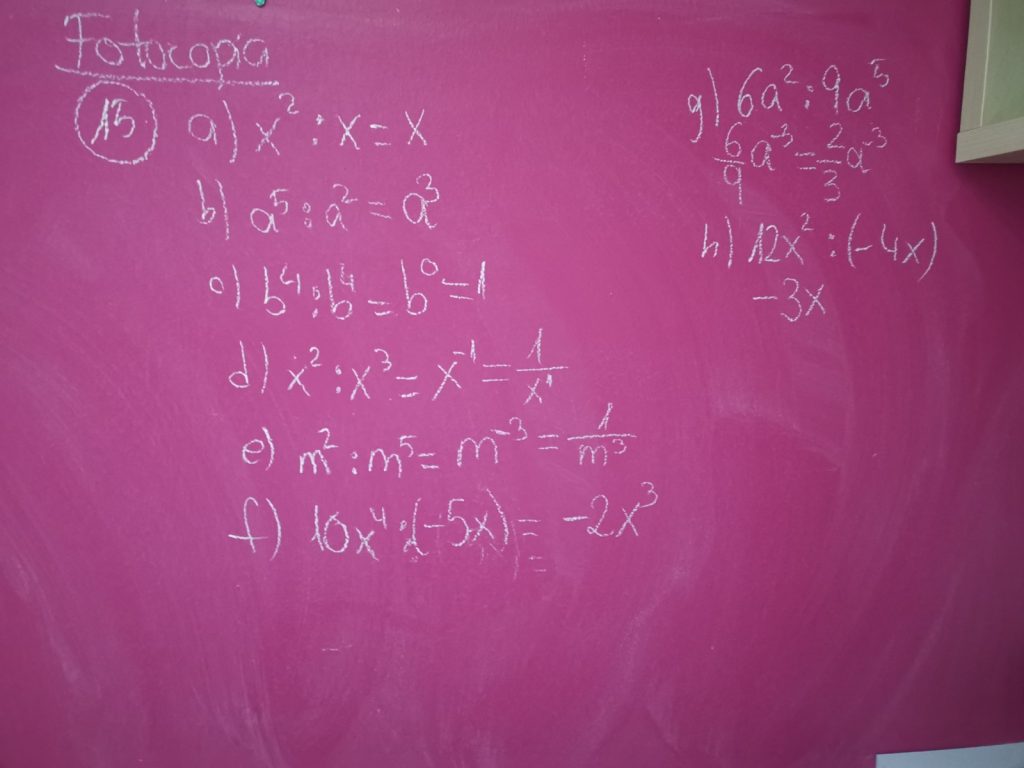 Fotocopia
15 a) x² : x = x
b) a⁵ : a² = a³
c) b⁴ : b⁴ = b⁰ = 1
d) x² : x³ = x⁻¹ = 1/x¹
e) m² : m⁵ = m⁻³ = 1/m³
f) 10x⁴ : (-5x) = -2x³
g) 6a² : 9a⁵
6/9 a⁻³ = 2/3 a⁻³
h) 12x² : (-4x)
-3x